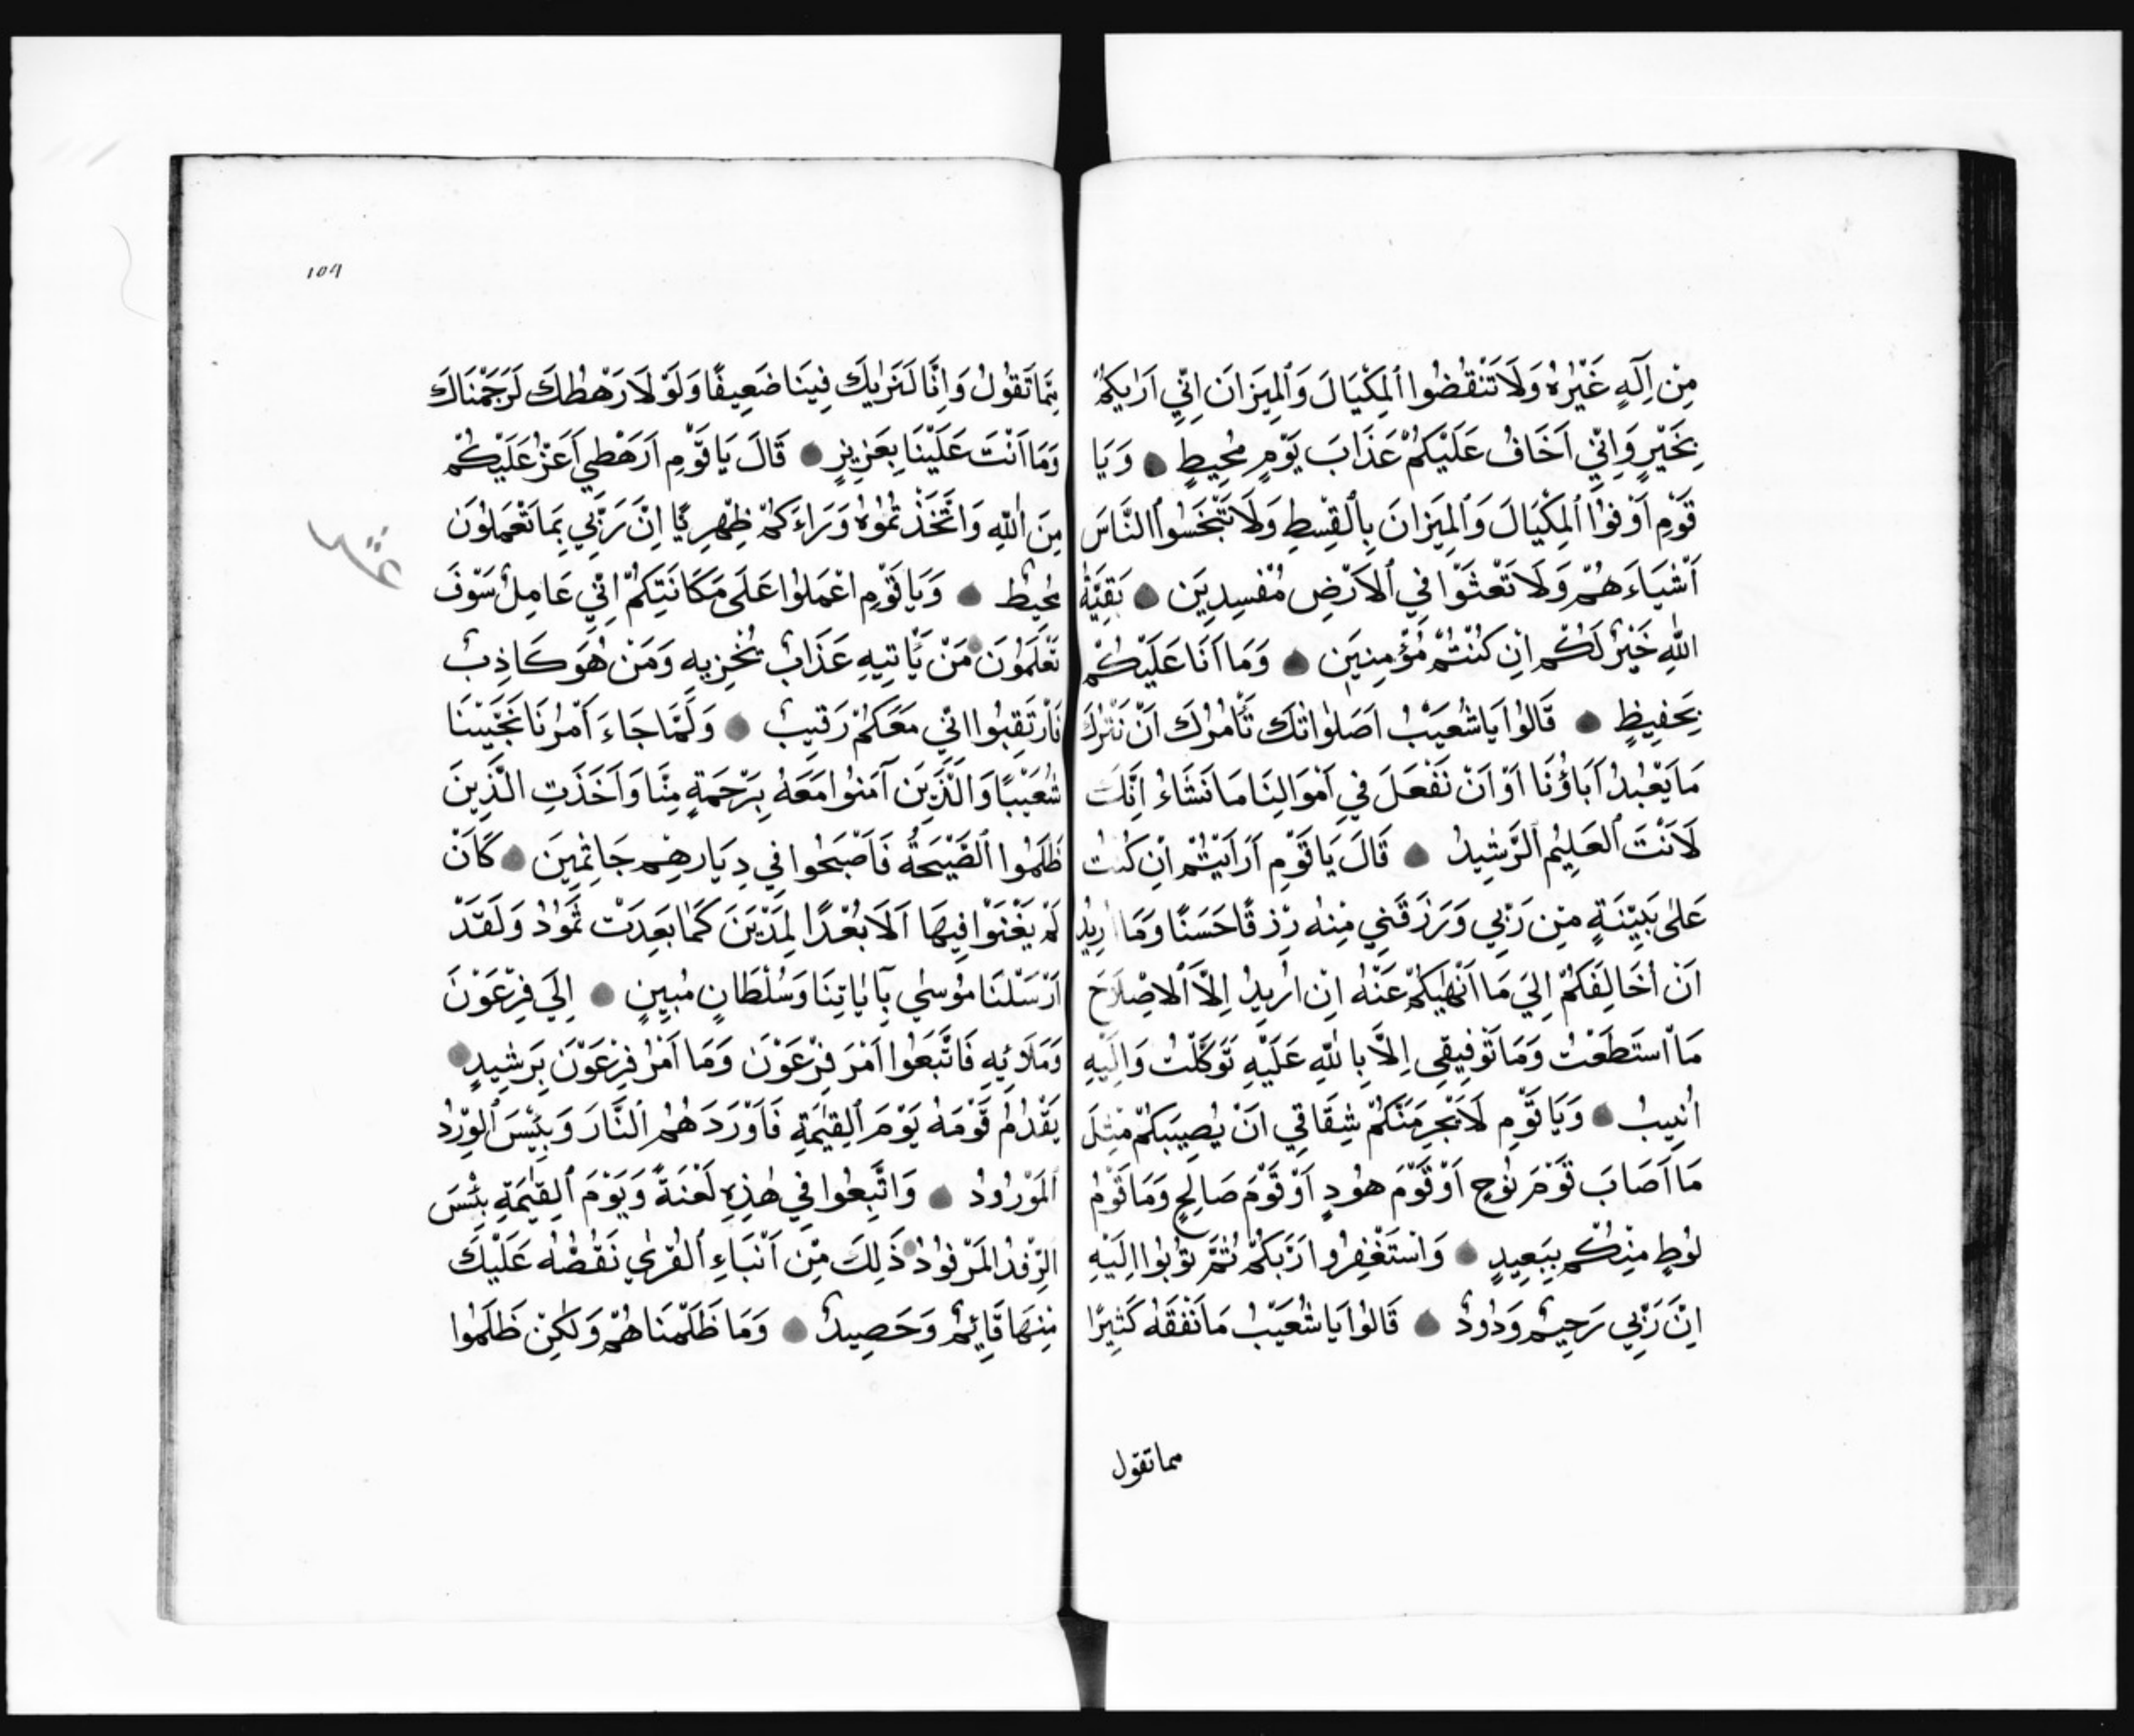 مِنْ اِلَهٍ غَيْرُهُ وَلَا تَنْقُصُوا الْمِكْيَالَ وَالْمِيزَانَ اِنِّي اَرٰيكُمْ
بِخَيْرٍ وَاِنِّي اَخَافُ عَلَيْكُمْ عَذَابَ يَوْمٍ مُحِيطٍ وَيَا
قَوْمِ اَوْفُوا الْمِكْيَالَ وَالْمِيزَانَ بِالْقِسْطِ وَلَا تَبْخَسُوا النَّاسَ
اَشْيَاءَهُمْ وَلَا تَعْثَوْا فِي الْاَرْضِ مُفْسِدِينَ بَقِيَّةُ
اللّٰهِ خَيْرٌ لَكُمْ اِنْ كُنْتُمْ مُؤْمِنِينَ وَمَا اَنَا عَلَيْكُمْ
بِحَفِيظٍ قَالُوا يَا شُعَيْبُ اَصَلٰوتُكَ تَأْمُرُكَ اَنْ نَتْرُكَ
مَا يَعْبُدُ آبَاؤُنَا اَوْ اَنْ نَفْعَلَ فِي اَمْوَالِنَا مَا نَشَاءُ اِنَّكَ
لَاَنْتَ الْعَلِيمُ الرَّشِيدُ قَالَ يَا قَوْمِ اَرَاَيْتُمْ اِنْ كُنْتُ
عَلٰى بَيِّنَةٍ مِنْ رَبِّي وَرَزَقَنِي مِنْهُ رِزْقًا حَسَنًا وَمَا اُرِيدُ
اَنْ اُخَالِفَكُمْ اِلَى مَا اَنْهٰيكُمْ عَنْهُ اِنْ اُرِيدُ اِلَّا الْاِصْلَاحَ
مَا اسْتَطَعْتُ وَمَا تَوْفِيقِي اِلَّا بِاللّٰهِ عَلَيْهِ تَوَكَّلْتُ وَاِلَيْهِ
اُنِيبُ وَيَا قَوْمِ لَا يَجْرِمَنَّكُمْ شِقَاقِي اَنْ يُصِيبَكُمْ مِثْلَ
مَا اَصَابَ قَوْمَ نُوحٍ اَوْ قَوْمَ هُودٍ اَوْ قَوْمَ صَالِحٍ وَمَا قَوْمُ
لُوطٍ مِنْكُمْ بِبَعِيدٍ وَاسْتَغْفِرُوا رَبَّكُمْ ثُمَّ تُوبُوا اِلَيْهِ
اِنَّ رَبِّي رَحِيمٌ وَدُودٌ قَالُوا يَا شُعَيْبُ مَا نَفْقَهُ كَثِيرًا
مما تقول
١٥٦
مِمَّا تَقُولُ وَاِنَّا لَنَرٰيكَ فِينَا ضَعِيفًا وَلَوْ لَا رَهْطُكَ لَرَجَمْنَاكَ
وَمَا اَنْتَ عَلَيْنَا بِعَزِيزٍ قَالَ يَا قَوْمِ اَرَهْطِي اَعَزُّ عَلَيْكُمْ
مِنَ اللّٰهِ وَاتَّخَذْتُمُوهُ وَرَاءَكُمْ ظِهْرِيًّا اِنَّ رَبِّي بِمَا تَعْمَلُونَ
مُحِيطٌ وَيَا قَوْمِ اعْمَلُوا عَلَى مَكَانَتِكُمْ اِنِّي عَامِلٌ سَوْفَ
تَعْلَمُونَ مَنْ يَأْتِيهِ عَذَابٌ يُخْزِيهِ وَمَنْ هُوَ كَاذِبٌ
فَارْتَقِبُوا اِنِّي مَعَكُمْ رَقِيبٌ وَلَمَّا جَاءَ اَمْرُنَا نَجَّيْنَا
شُعَيْبًا وَالَّذِينَ آمَنُوا مَعَهُ بِرَحْمَةٍ مِنَّا وَاَخَذَتِ الَّذِينَ
ظَلَمُوا الصَّيْحَةُ فَاَصْبَحُوا فِي دِيَارِهِمْ جَاثِمِينَ كَاَنْ
لَمْ يَغْنَوْا فِيهَا اَلَا بُعْدًا لِمَدْيَنَ كَمَا بَعِدَتْ ثَمُودُ وَلَقَدْ
اَرْسَلْنَا مُوسٰي بِآيَاتِنَا وَسُلْطَانٍ مُبِينٍ اِلَى فِرْعَوْنَ
وَمَلَائِهِ فَاتَّبَعُوا اَمْرَ فِرْعَوْنَ وَمَا اَمْرُ فِرْعَوْنَ بِرَشِيدٍ
يَقْدُمُ قَوْمَهُ يَوْمَ الْقِيٰمَةِ فَاَوْرَدَهُمُ النَّارَ وَبِئْسَ الْوِرْدُ
الْمَوْرُودُ وَاتُّبِعُوا فِي هٰذِهِ لَعْنَةً وَيَوْمَ الْقِيٰمَةِ بِئْسَ
الرِّفْدُ الْمَرْفُودُ ذَلِكَ مِنْ اَنْبَاءِ الْقُرٰي نَقُصُّهُ عَلَيْكَ
مِنْهَا قَائِمٌ وَحَصِيدٌ وَمَا ظَلَمْنَاهُمْ وَلٰكِنْ ظَلَمُوا
عشر